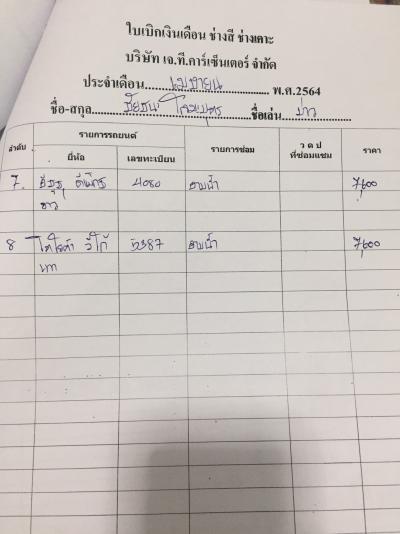 ใบเบิกเงินเดือน ช่างสี ช่างเคาะ
บริษัท เจ.ที.คาร์เซ็นเตอร์ จำกัด
ประจำเดือน เมษายน พ.ศ.2564
ชื่อ-สกุล ชื่อเล่น
ลำดับ รายการรถยนต์ รายการซ่อม ว ด ป ที่ซ่อมแซม ราคา
ยี่ห้อ เลขทะเบียน
7. อีซูซุ ดีแม็กซ์ 4080 7,600
ขาว
8 โตโยต้า วีโก้ 5387 7,600
เทา